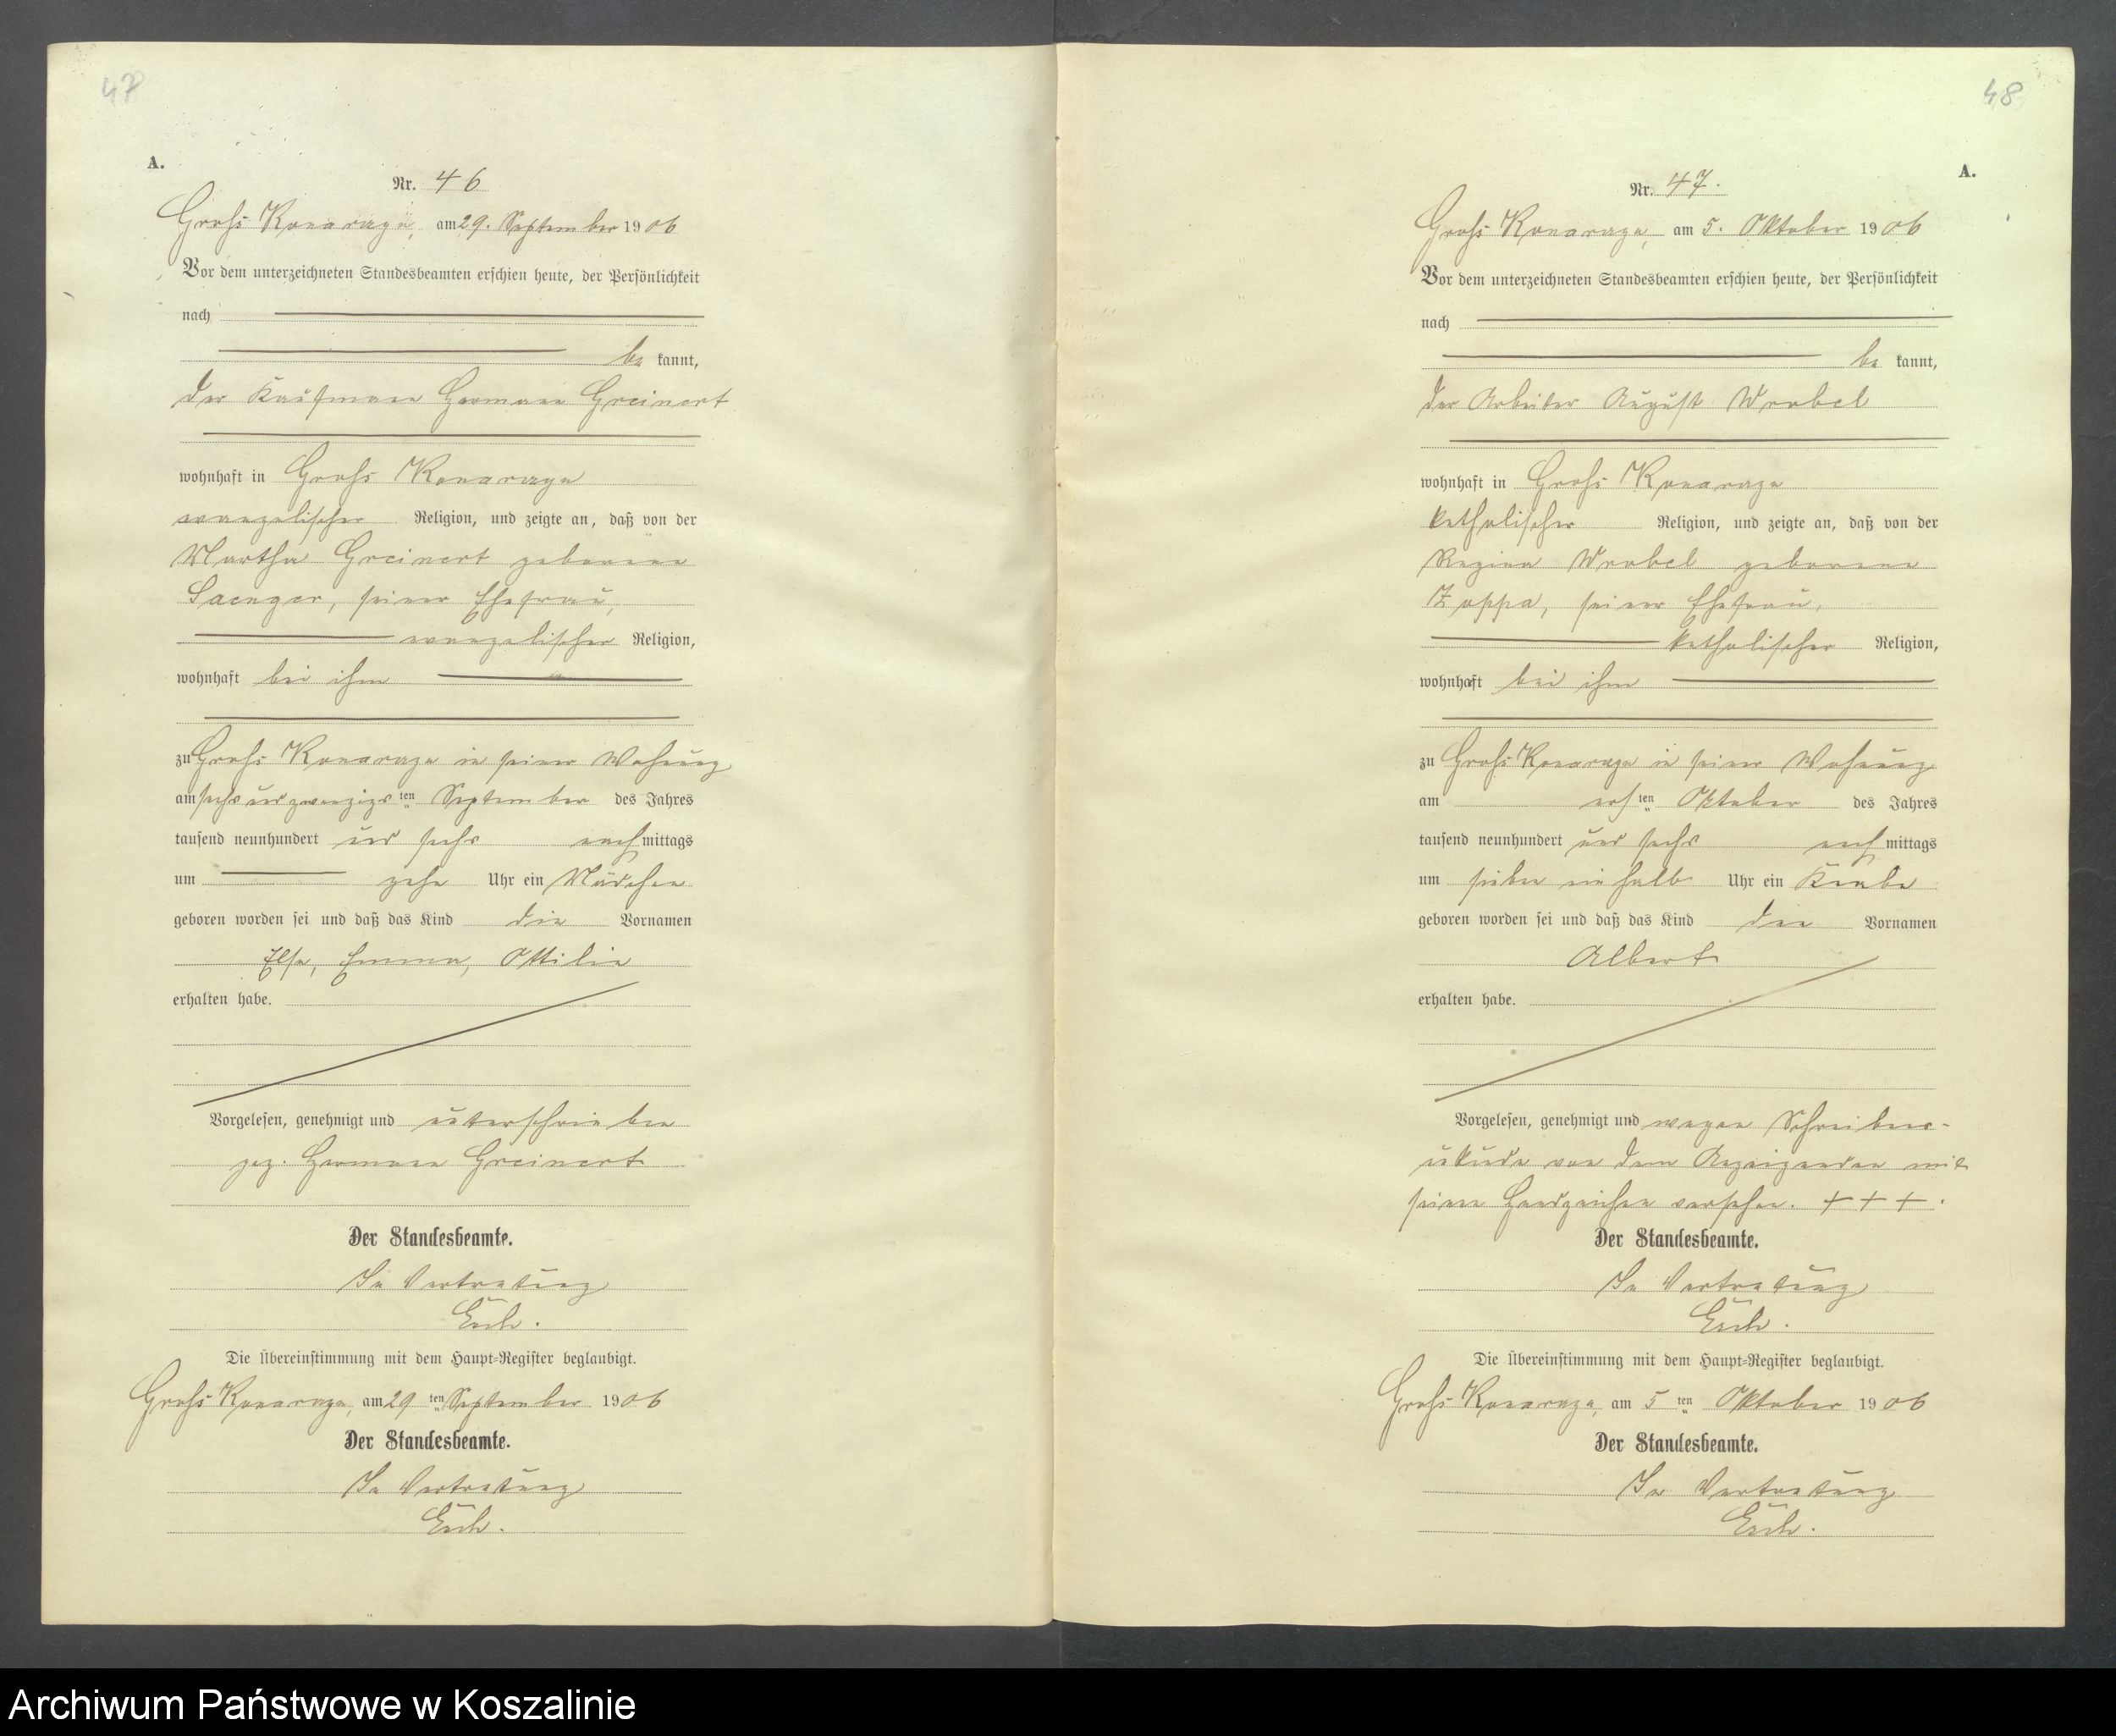 47
A.
Nr. 46
Groß Konarzyn, am 29. September 1906
Vor dem unterzeichneten Standesbeamten erschien heute, der Persönlichkeit
nach
be kannt,
der Kaufmann Hermann Greinert
wohnhaft in Groß Konarzyn
evangelischer Religion, und zeigte an, daß von der
Martha Greinert geborene
Saenger, seiner Ehefrau,
evangelischer Religion,
wohnhaft bei ihm
zu Groß Konarzyn in seiner Wohnung
am sechs und zwanzigsten September des Jahres
tausend neunhundert und sechs nachmittags
um zehn Uhr ein Mädchen
geboren worden sei und daß das Kind die Vornamen
Else, Emma, Ottilie
erhalten habe.
Vorgelesen, genehmigt und unterschrieben
gez. Hermann Greinert
Der Standesbeamte.
In Vertretung
Die Übereinstimmung mit dem Haupt-Register beglaubigt.
Groß Konarzyn, am 29 ten September 1906
Der Standesbeamte.
In Vertretung
48
A.
Nr. 47.
Groß Konarzyn, am 5. Oktober 1906
Vor dem unterzeichneten Standesbeamten erschien heute, der Persönlichkeit
nach
be kannt,
der Arbeiter August Wrobel
wohnhaft in Groß Konarzyn
katholischer Religion, und zeigte an, daß von der
Regina Wrobel geborene
Zoppa, seiner Ehefrau,
katholischer Religion,
wohnhaft bei ihm
zu Groß Konarzyn in seiner Wohnung
am ersten Oktober des Jahres
tausend neunhundert und sechs nachmittags
um sieben ein halb Uhr ein Knabe
geboren worden sei und daß das Kind den Vornamen
Albert
erhalten habe.
Vorgelesen, genehmigt und wegen Schreibens-
unkunde von dem Anzeigenden mit
seinem Handzeichen versehen. + + + .
Der Standesbeamte.
In Vertretung
Die Übereinstimmung mit dem Haupt-Register beglaubigt.
Groß Konarzyn, am 5 ten Oktober 1906
Der Standesbeamte.
In Vertretung
Archiwum Państwowe w Koszalinie